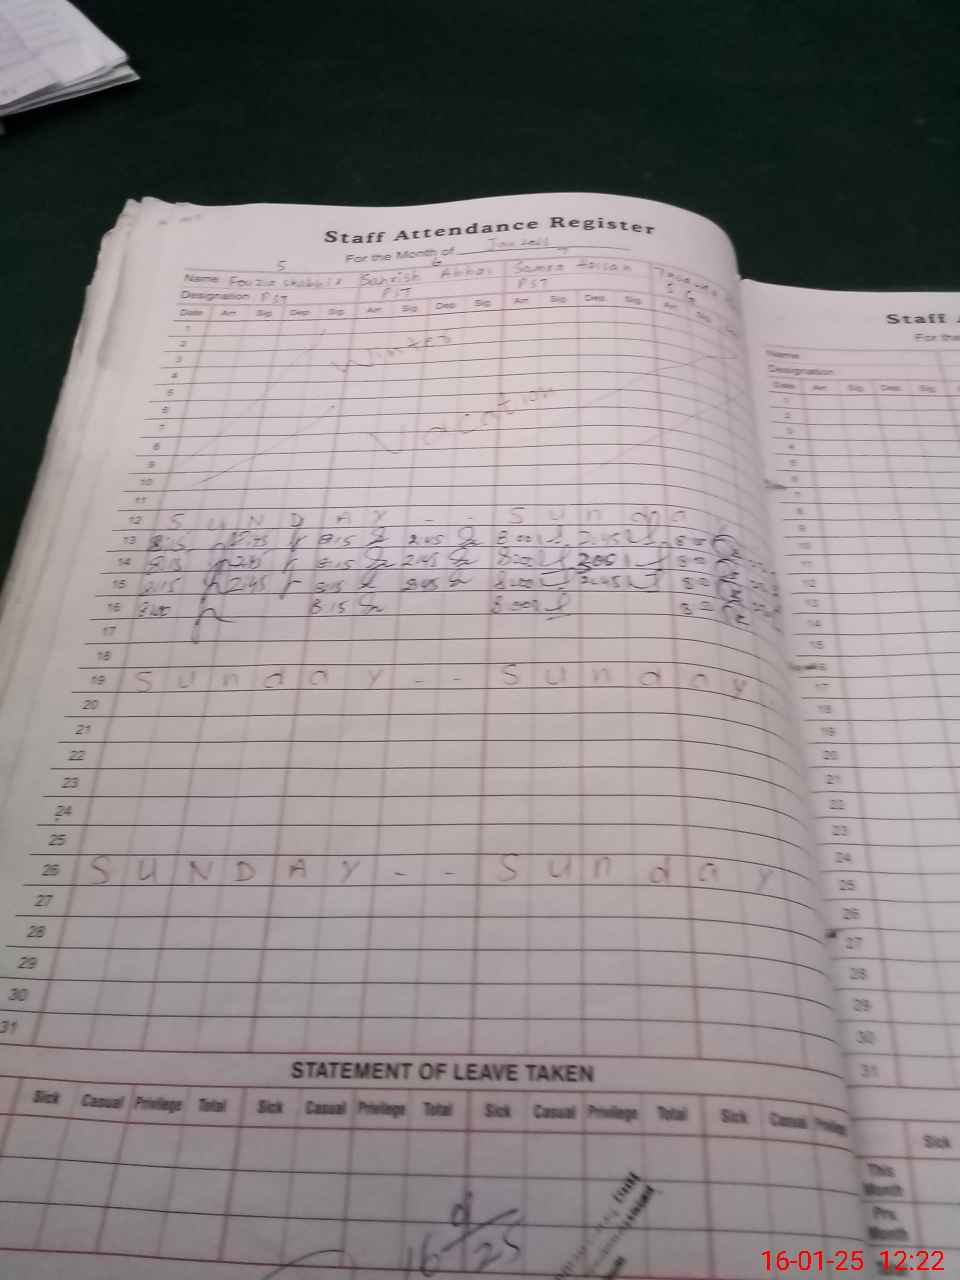 Staff Attendance Register
For the Month of
5 6
Name Fouzia Shabbir Sehrish Abbas Samra Hassan
Designation PST PST PST
Date Arr Sig Dep Sig Arr Sig Dep Sig Arr Sig Dep Sig Arr Sig
1
2
3 Winter
4
5
6
7 Vacation
8
9
10
11
12 SUNDAY -- Sunda
13 8:15 2:45 8:15 2:45 8:00 2:45 8:00
14 8:15 2:45 8:15 2:45 8:00 3:05 8:00
15 8:15 2:45 8:15 2:45 8:00 2:45 8:00
16 8:00 8:15 8:00 8:00
17
18
19 Sunday -- Sunday
20
21
22
23
24
25
26 SUNDAY -- Sunday
27
28
29
30
31
STATEMENT OF LEAVE TAKEN
Sick Casual Privilege Total Sick Casual Privilege Total Sick Casual Privilege Total Sick Casual
16 25
Staff
For the
Name
Designation
Date Arr Sig Dep Sig
1
2
3
4
5
6
7
8
9
10
11
12
13
14
15
16
17
18
19
20
21
22
23
24
25
26
27
28
29
30
31
Sick
This
Month
Prv.
Month
16-01-25 12:22